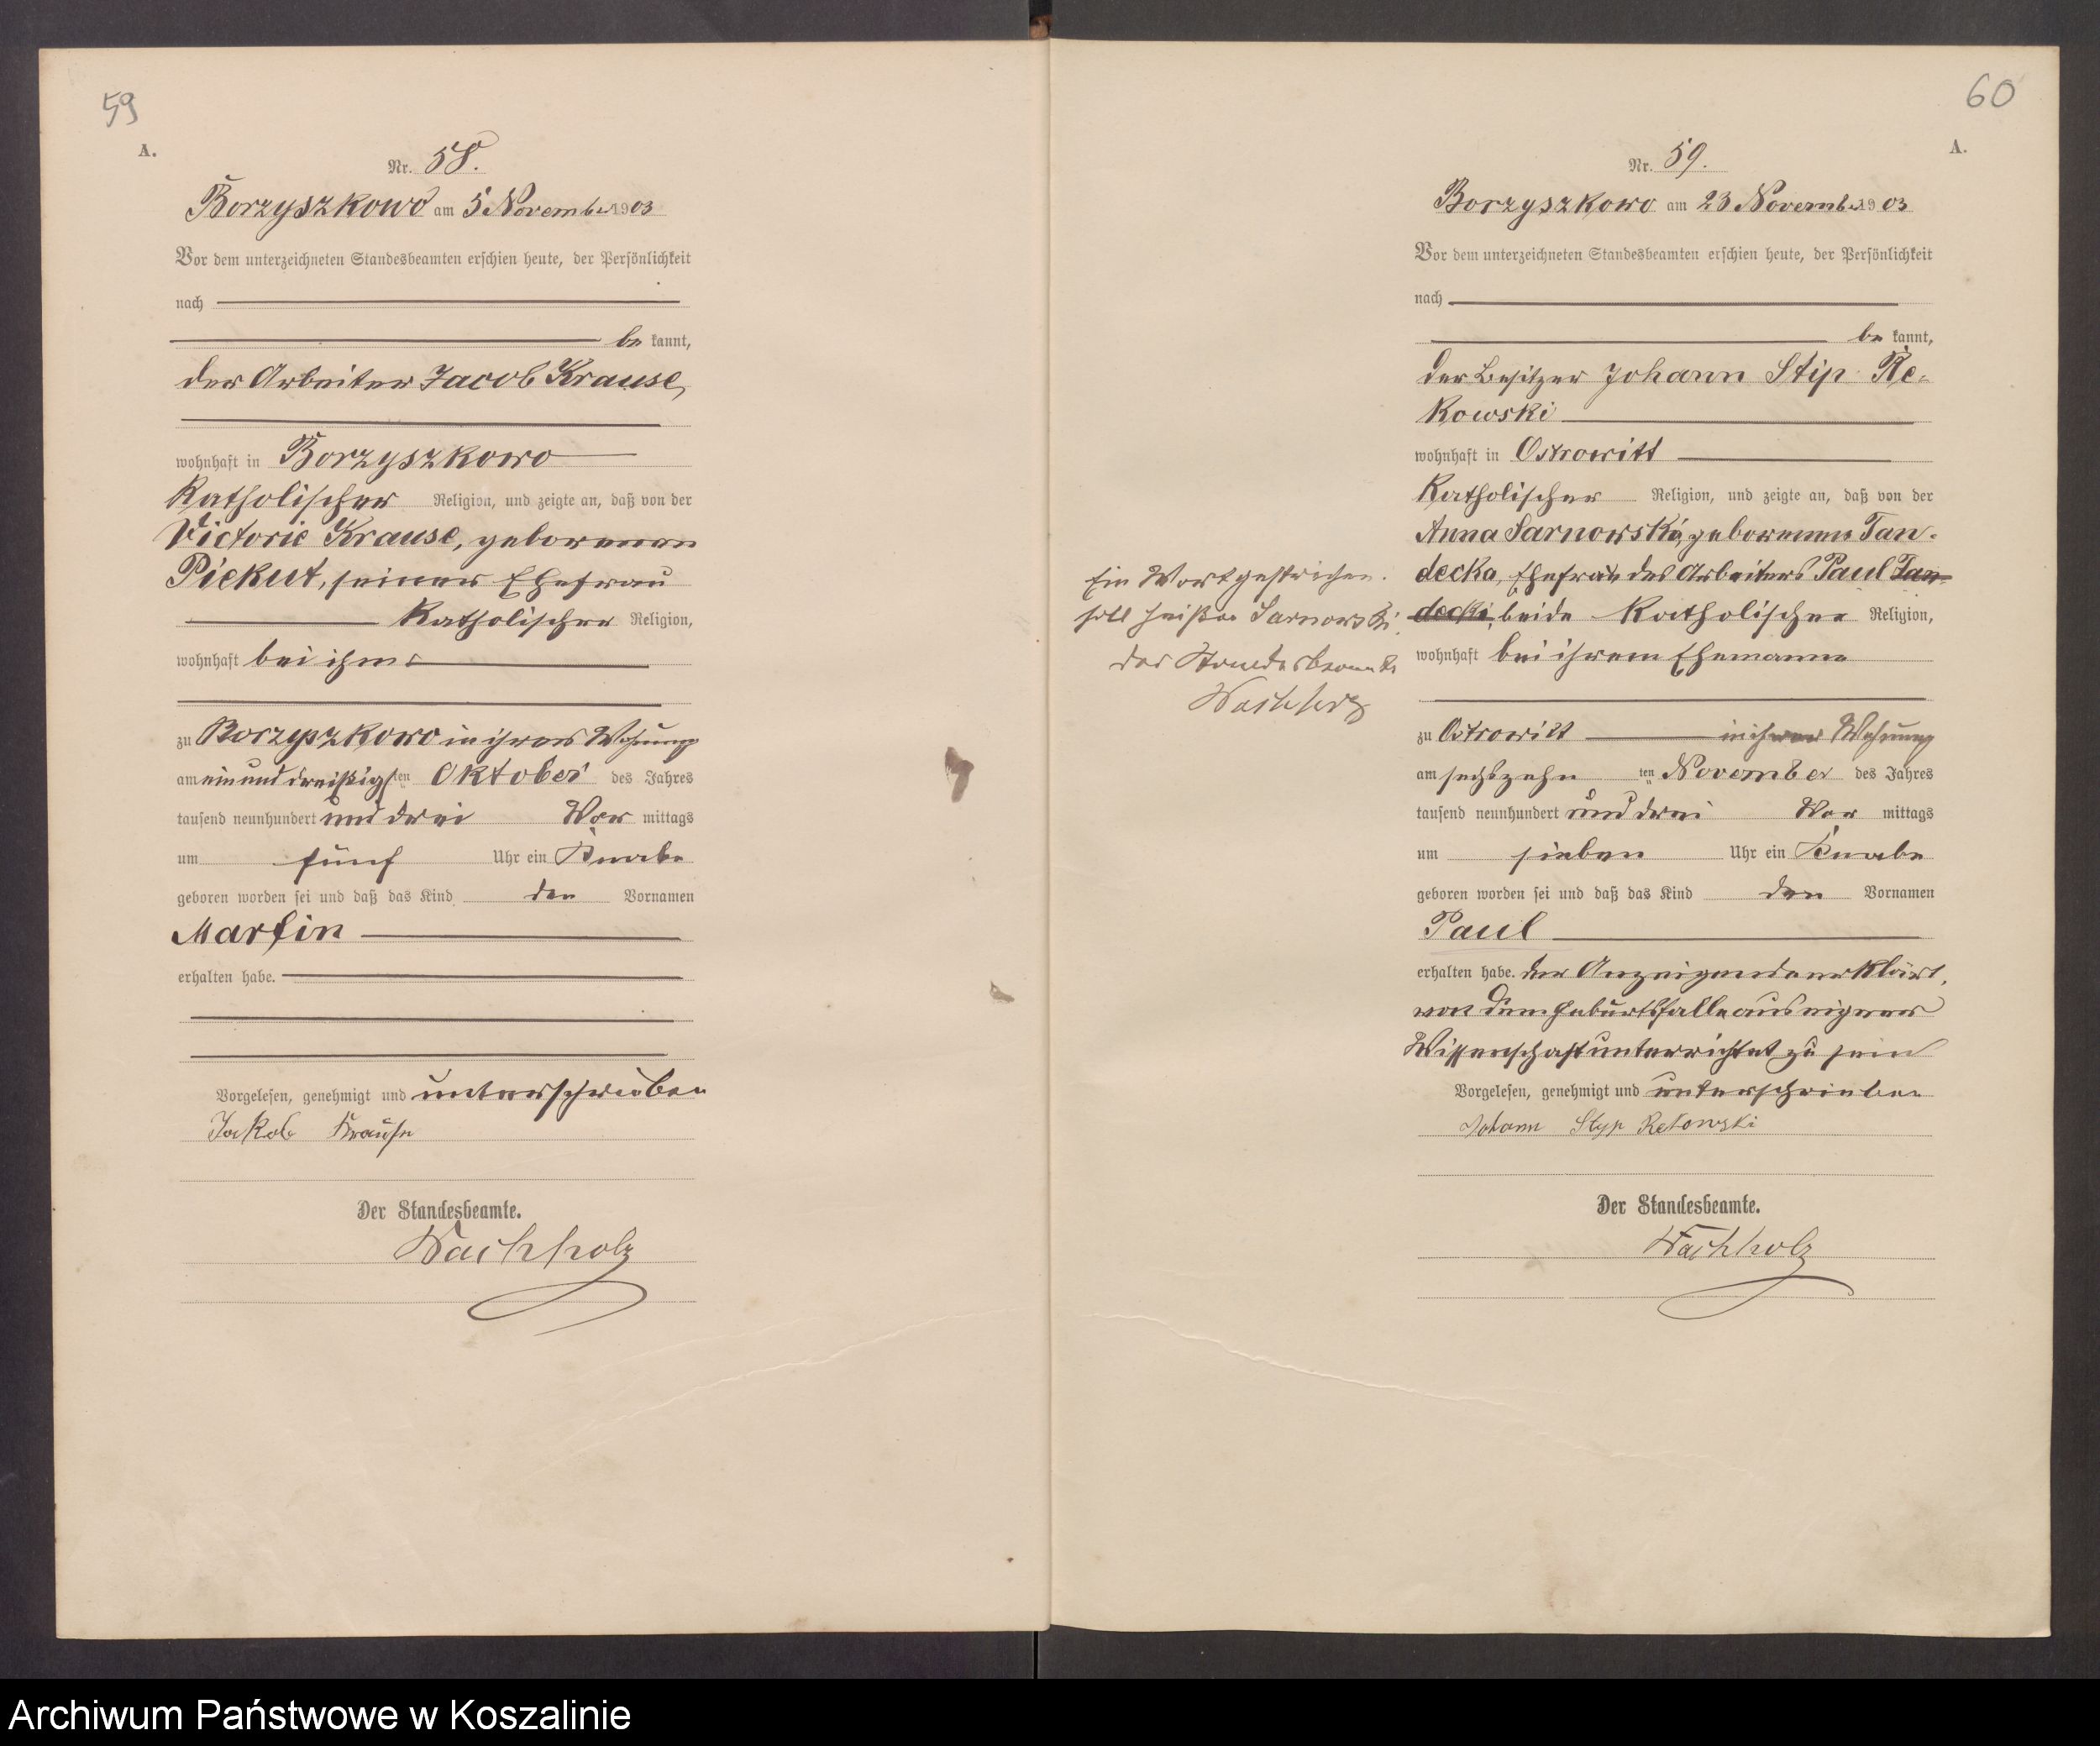 59
A.
Nr. 58.
Borzyszkowo am 5 November 1903
Vor dem unterzeichneten Standesbeamten erschien heute, der Persönlichkeit
nach
be kannt,
der Arbeiter Jacob Krause,
wohnhaft in Borzyszkowo
Katholischer Religion, und zeigte an, daß von der
Victorie Krause, geborenen
Piekut, seiner Ehefrau
Katholischer Religion,
wohnhaft bei ihm
zu Borzyszkowo in ihrer Wohnung
am ein und dreißigsten Oktober des Jahres
tausend neunhundert und drei Vor mittags
um fünf Uhr ein Knabe
geboren worden sei und daß das Kind den Vornamen
Martin
erhalten habe.
Vorgelesen, genehmigt und unterschrieben
Jakob Krause
Der Standesbeamte.
Wachholz
60
A.
Nr. 59.
Borzyszkowo am 23 November 1903
Vor dem unterzeichneten Standesbeamten erschien heute, der Persönlichkeit
nach
be kannt,
der Besitzer Johann Stip Re-
kowski
wohnhaft in Ostrowitt
Katholischer Religion, und zeigte an, daß von der
Anna Sarnowski, geborenen Tan-
decka, Ehefrau des Arbeiters Paul Tan-
decki, beide Katholischer Religion,
wohnhaft bei ihrem Ehemanne
zu Ostrowitt in ihrer Wohnung
am sechszehn ten November des Jahres
tausend neunhundert und drei Vor mittags
um sieben Uhr ein Knabe
geboren worden sei und daß das Kind den Vornamen
Paul
erhalten habe. der Anzeigende erklärt,
von dem Geburtsfalle aus eigner
Wissenschaft unterrichtet zu sein
Vorgelesen, genehmigt und unterschrieben
Johann Styp Rekowski
Der Standesbeamte.
Wachholz
Ein Wort gestrichen.
soll heißen Sarnowski.
Der Standesbeamte
Wachholz
Archiwum Państwowe w Koszalinie